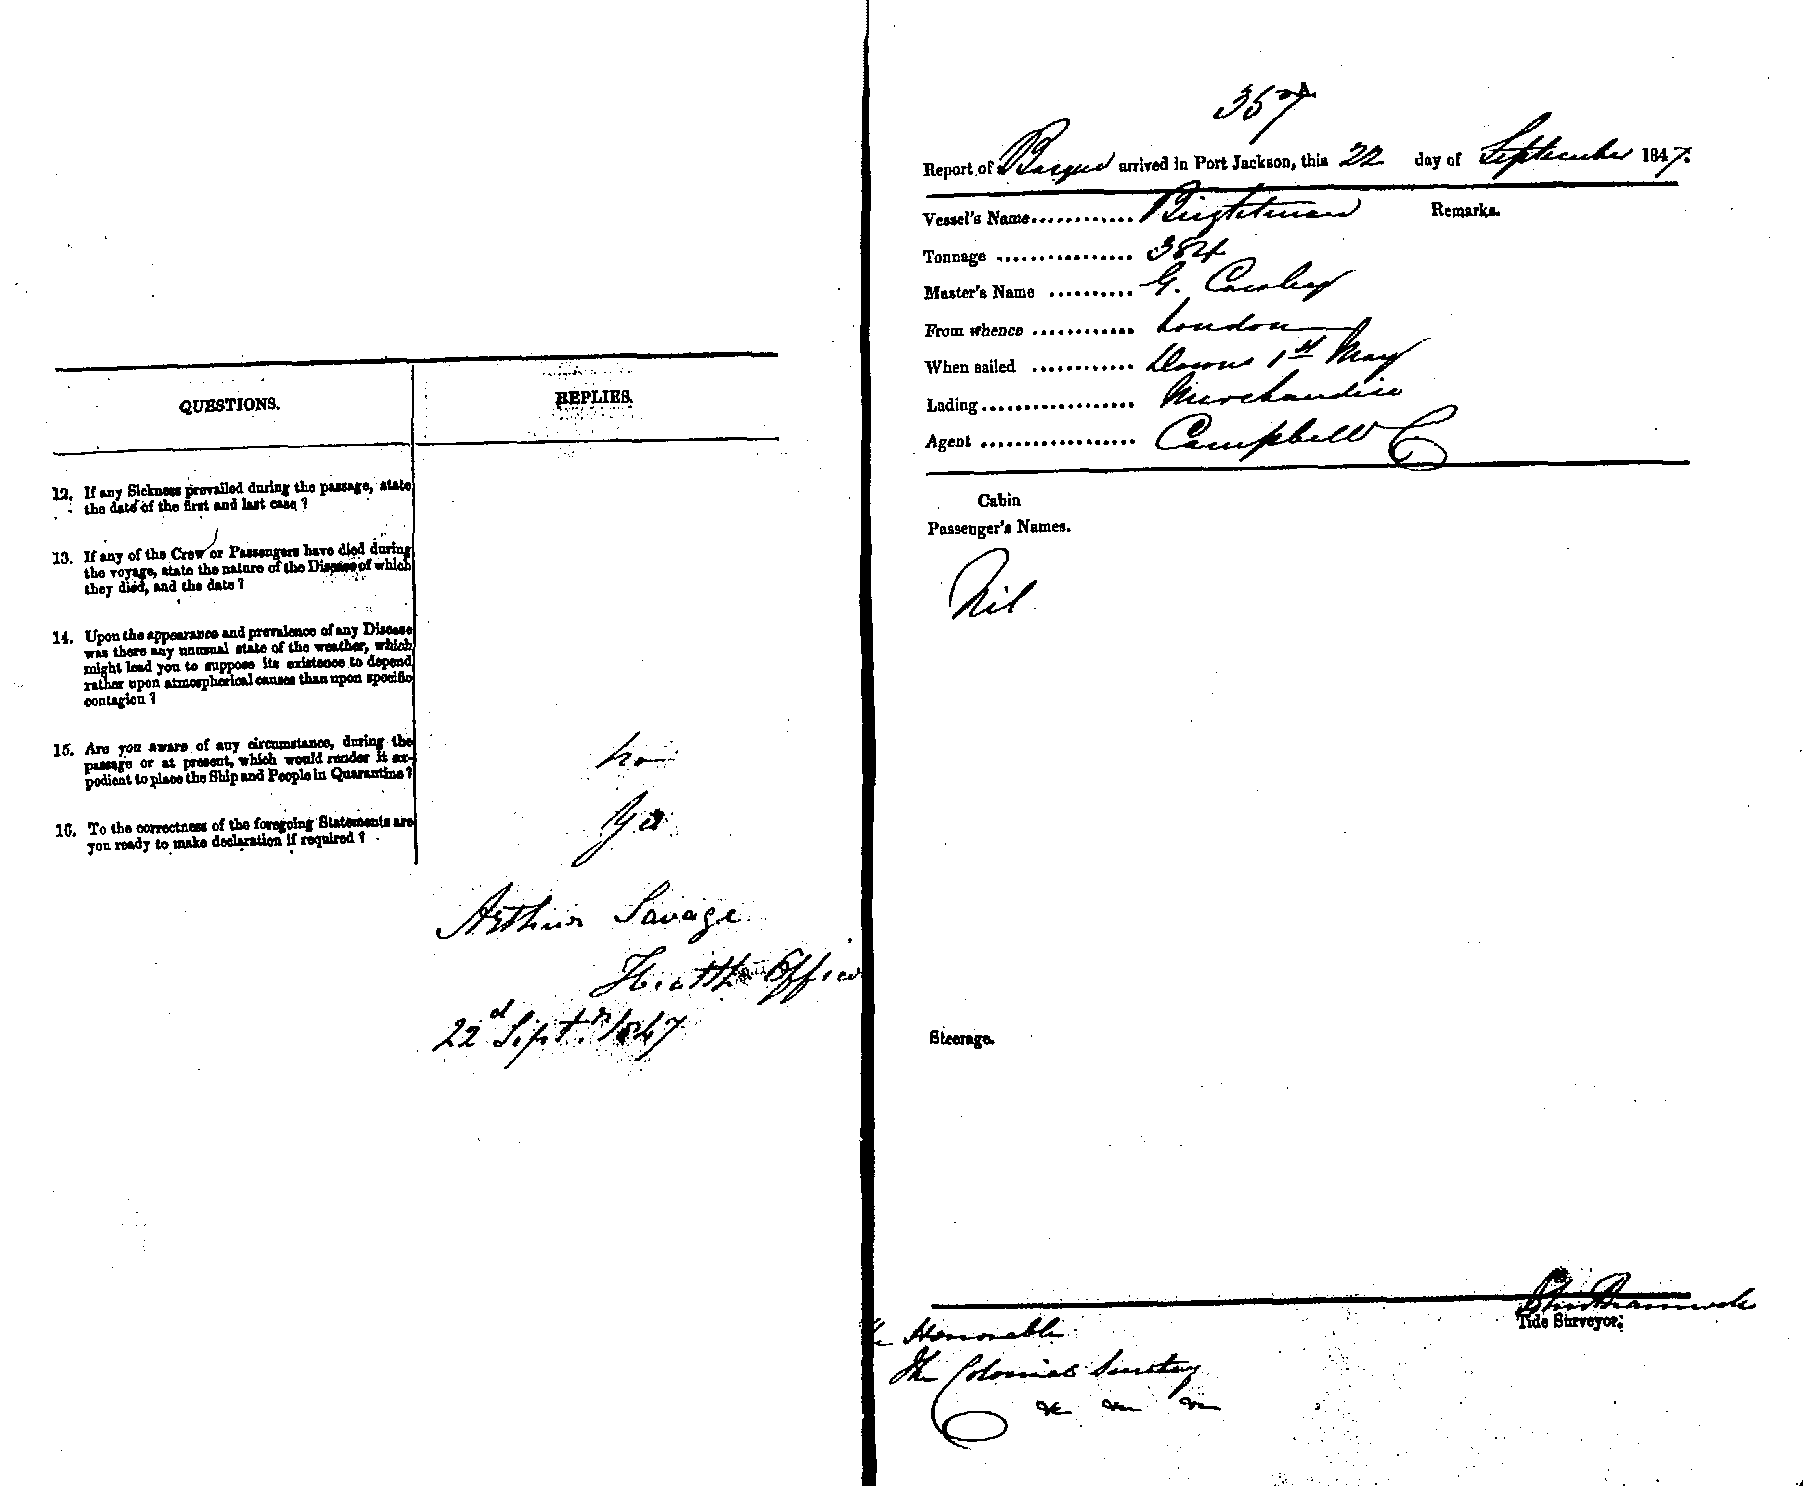 QUESTIONS.
REPLIES.
12. If any Sickness prevailed during the passage, state
the date of the first and last case ?
13. If any of the Crew or Passengers have died during
the voyage, state the nature of the Disease of which
they died, and the date ?
14. Upon the appearance and prevalence of any Disease
was there any unusual state of the weather, which
might lead you to suppose its existence to depend
rather upon atmospherical causes than upon specific
contagion ?
15. Are you aware of any circumstance, during the
passage or at present, which would render it ex-
pedient to place the Ship and People in Quarantine ?
no
16. To the correctness of the foregoing Statements are
you ready to make declaration if required ?
Yes
Arthur Savage
Health Officer
22d Septr. 1847
357
Report of Barque arrived in Port Jackson, this 22 day of September 1847.
Vessel's Name............ Brightman
Remarks.
Tonnage ............... 384
Master's Name .......... G. Cowley
From whence ............ London
When sailed ............ Downs 1st May
Lading.................. Merchandise
Agent .................. Campbell & Co
Cabin
Passenger's Names.
Nil
Steerage.
John Bramwell
Tide Surveyor.
The Honorable
The Colonial Secretary
&c &c &c